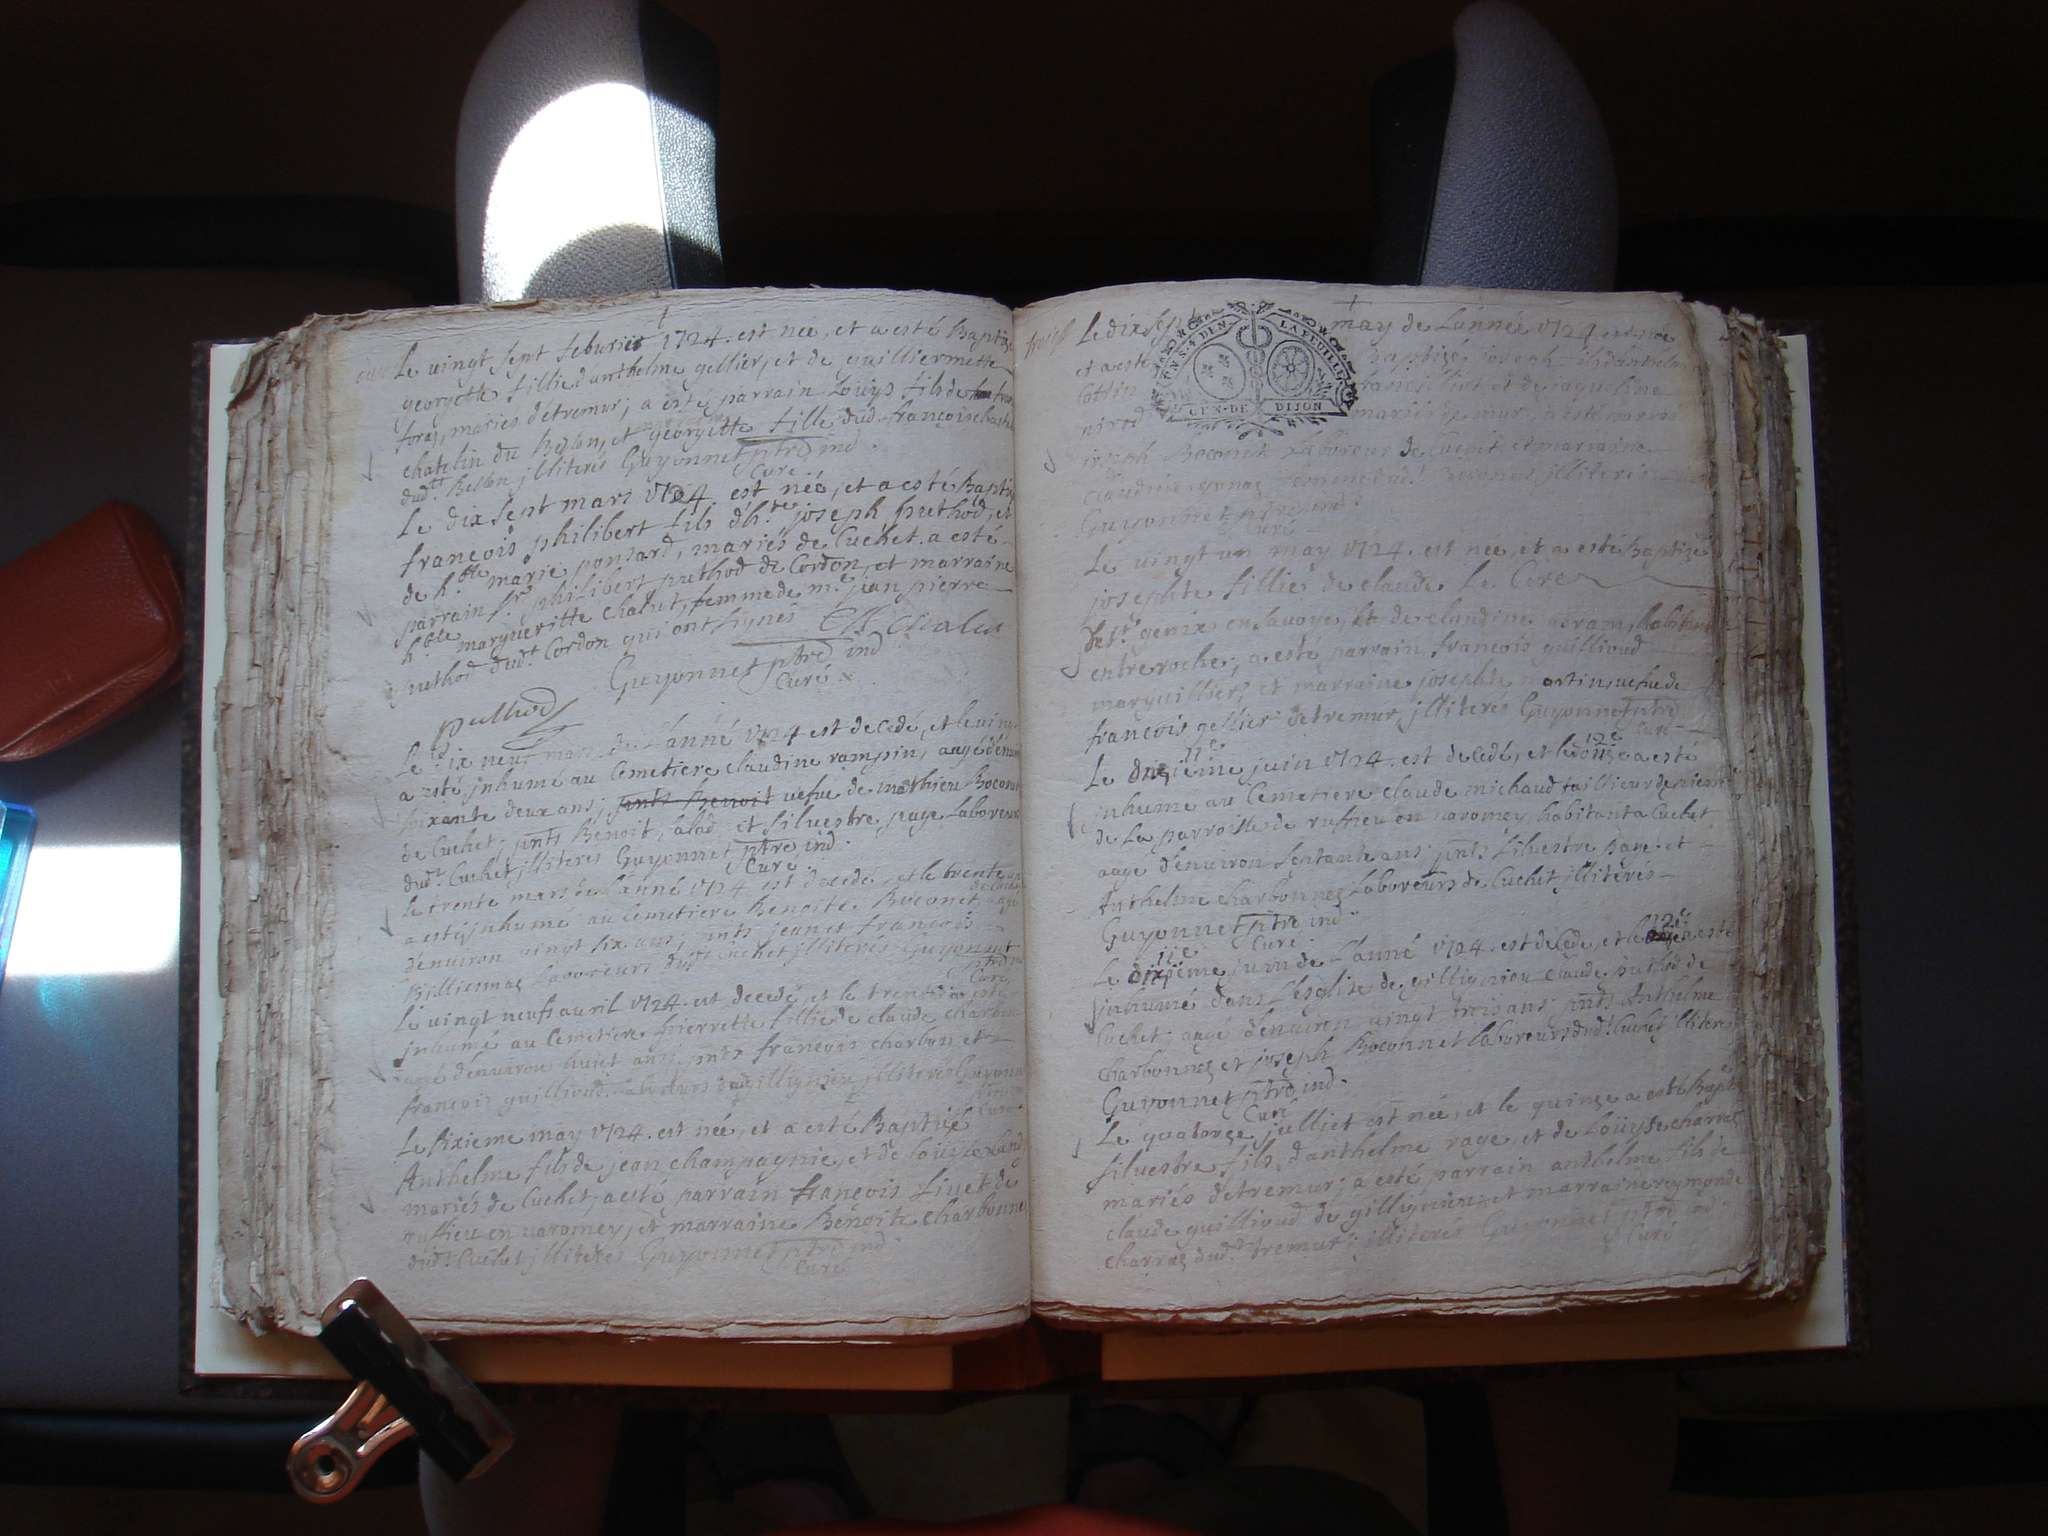 Le vingt sept feburier 1724. est née, et a esté Baptisé
georgette fillie d'anthelme gellier, et de guilliermette
foraz, mariés d'étremur; a esté parrain Louys fils de fran
chatelin du Beslon, et georgette fille dud. françois chatel
dud.t Beslon jlliterés Guyonnet ptre ind.
Curé
Le dix sept mars 1724. est née, et a esté Bapti
françois philibert fils d'h.ble joseph puthod, et
de h.ble marie ponsard, mariés de Cuchet. a esté
parrain s.r philibert puthod de Cordon, et marraine
h.ble margueritte Chalut, femme de m.e jean pierre
puthod dud.t Cordon qui ont signés
Guyonnet ptre ind
Curé
puthod
Le dix neuf mars de L'anné 1724 est decedé, et le vin
a esté jnhumé au Cemetiere claudine rampin, augé d'en
soixante deux ans; pnts Benoit vefve de mathieu Bocon
de Cuchet; pnts Benoit, et silvestre jeage Laboreur
dud.t Cuchet jlliterés Guyonnet ptre ind.
Curé
Le trente mars de L'anné 1724 est decedé, et le trente
a esté jnhumé au Cemetiere Benoite Boconet
d'environ vingt six ans; pnts jean et françois
Billiemaz Laboreurs dud.t Cuchet jlliterés Guyonnet
ptre ind
Curé
Le vingt neuf avril 1724. est decedé, et le trente
jnhumé au Cemetiere pierrette fillie de claude charbon
augé d'environ huict ans; pnts françois charbon, et
françois guillioud Laboreurs de gillignieu jlliterés Guyonn
Curé
Le sixieme may 1724. est née, et a esté Baptisé
Anthelme fils de jean champagnie, et de
mariés de Cuchet; a esté parrain françois de
ruffieu en varomey, et marraine Benoite charbonne
dud.t Cuchet jlliterés Guyonnet ptre ind.
Curé
Le dix sep may de L'année 1724 est née
et a esté Baptisé joseph fils d'anthelme
et de jaqueline
mariés
GEN. DE DIJON
LA FEUILLE
joseph Boconet Laboreur de et marraine
claudine femme dud.t Boconet jlliterés
Guyonnet ptre ind.
Curé
Le vingt un may 1724. est née, et a esté Baptisé
josephte fillie de claude Le Cere
de s.t genix en savoye, et de claudine habitant
entreroche; a esté parrain françois guillioud
marguillier, et marraine josephte martin, vefve de
françois gellier d'etremur, jlliterés Guyonnet ptre
Curé
11e 12e
Le onzieme juin 1724. est decedé, et le a esté
jnhumé au Cemetiere claude michaud taillieur de pierre
de La parroisse de ruffieu en varomey, habitant a Cuchet
augé d'environ septante ans; pnts silvestre et
Anthelme charbonnez Laboreurs de Cuchet jlliterés
Guyonnet ptre ind.
Curé
11e 12e
Le dixieme juin de L'anné 1724. est decedé, et le a esté
jnhumé dans L'esglise de gillignieu claude puthod de
Cuchet; augé d'environ vingt trois ans; pnts Anthelme
charbonnez et joseph Boconnet Laboreurs dud.t Cuchet jlliteré
Guyonnet ptre ind.
Curé
Le quatorze julliet est née, et le quinze a esté Bapt
silvestre fils d'anthelme rage, et de Louyse charraz
mariés d'etremur; a esté parrain anthelme fils de
claude guillioud de gillignieu et marraine reymonde
charraz dud.t tremur; jlliterés Guyonnet ptre ind
Curé